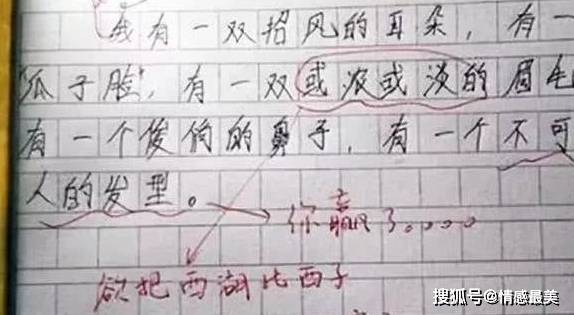 我有一双招风的耳朵，有一
"瓜子脸"，有一双或浓或淡的眉毛
有一个俊俏的鼻子，有一个不可
人的发型。
你赢了。。。。
欲把西湖比西子
搜狐号@情感最美